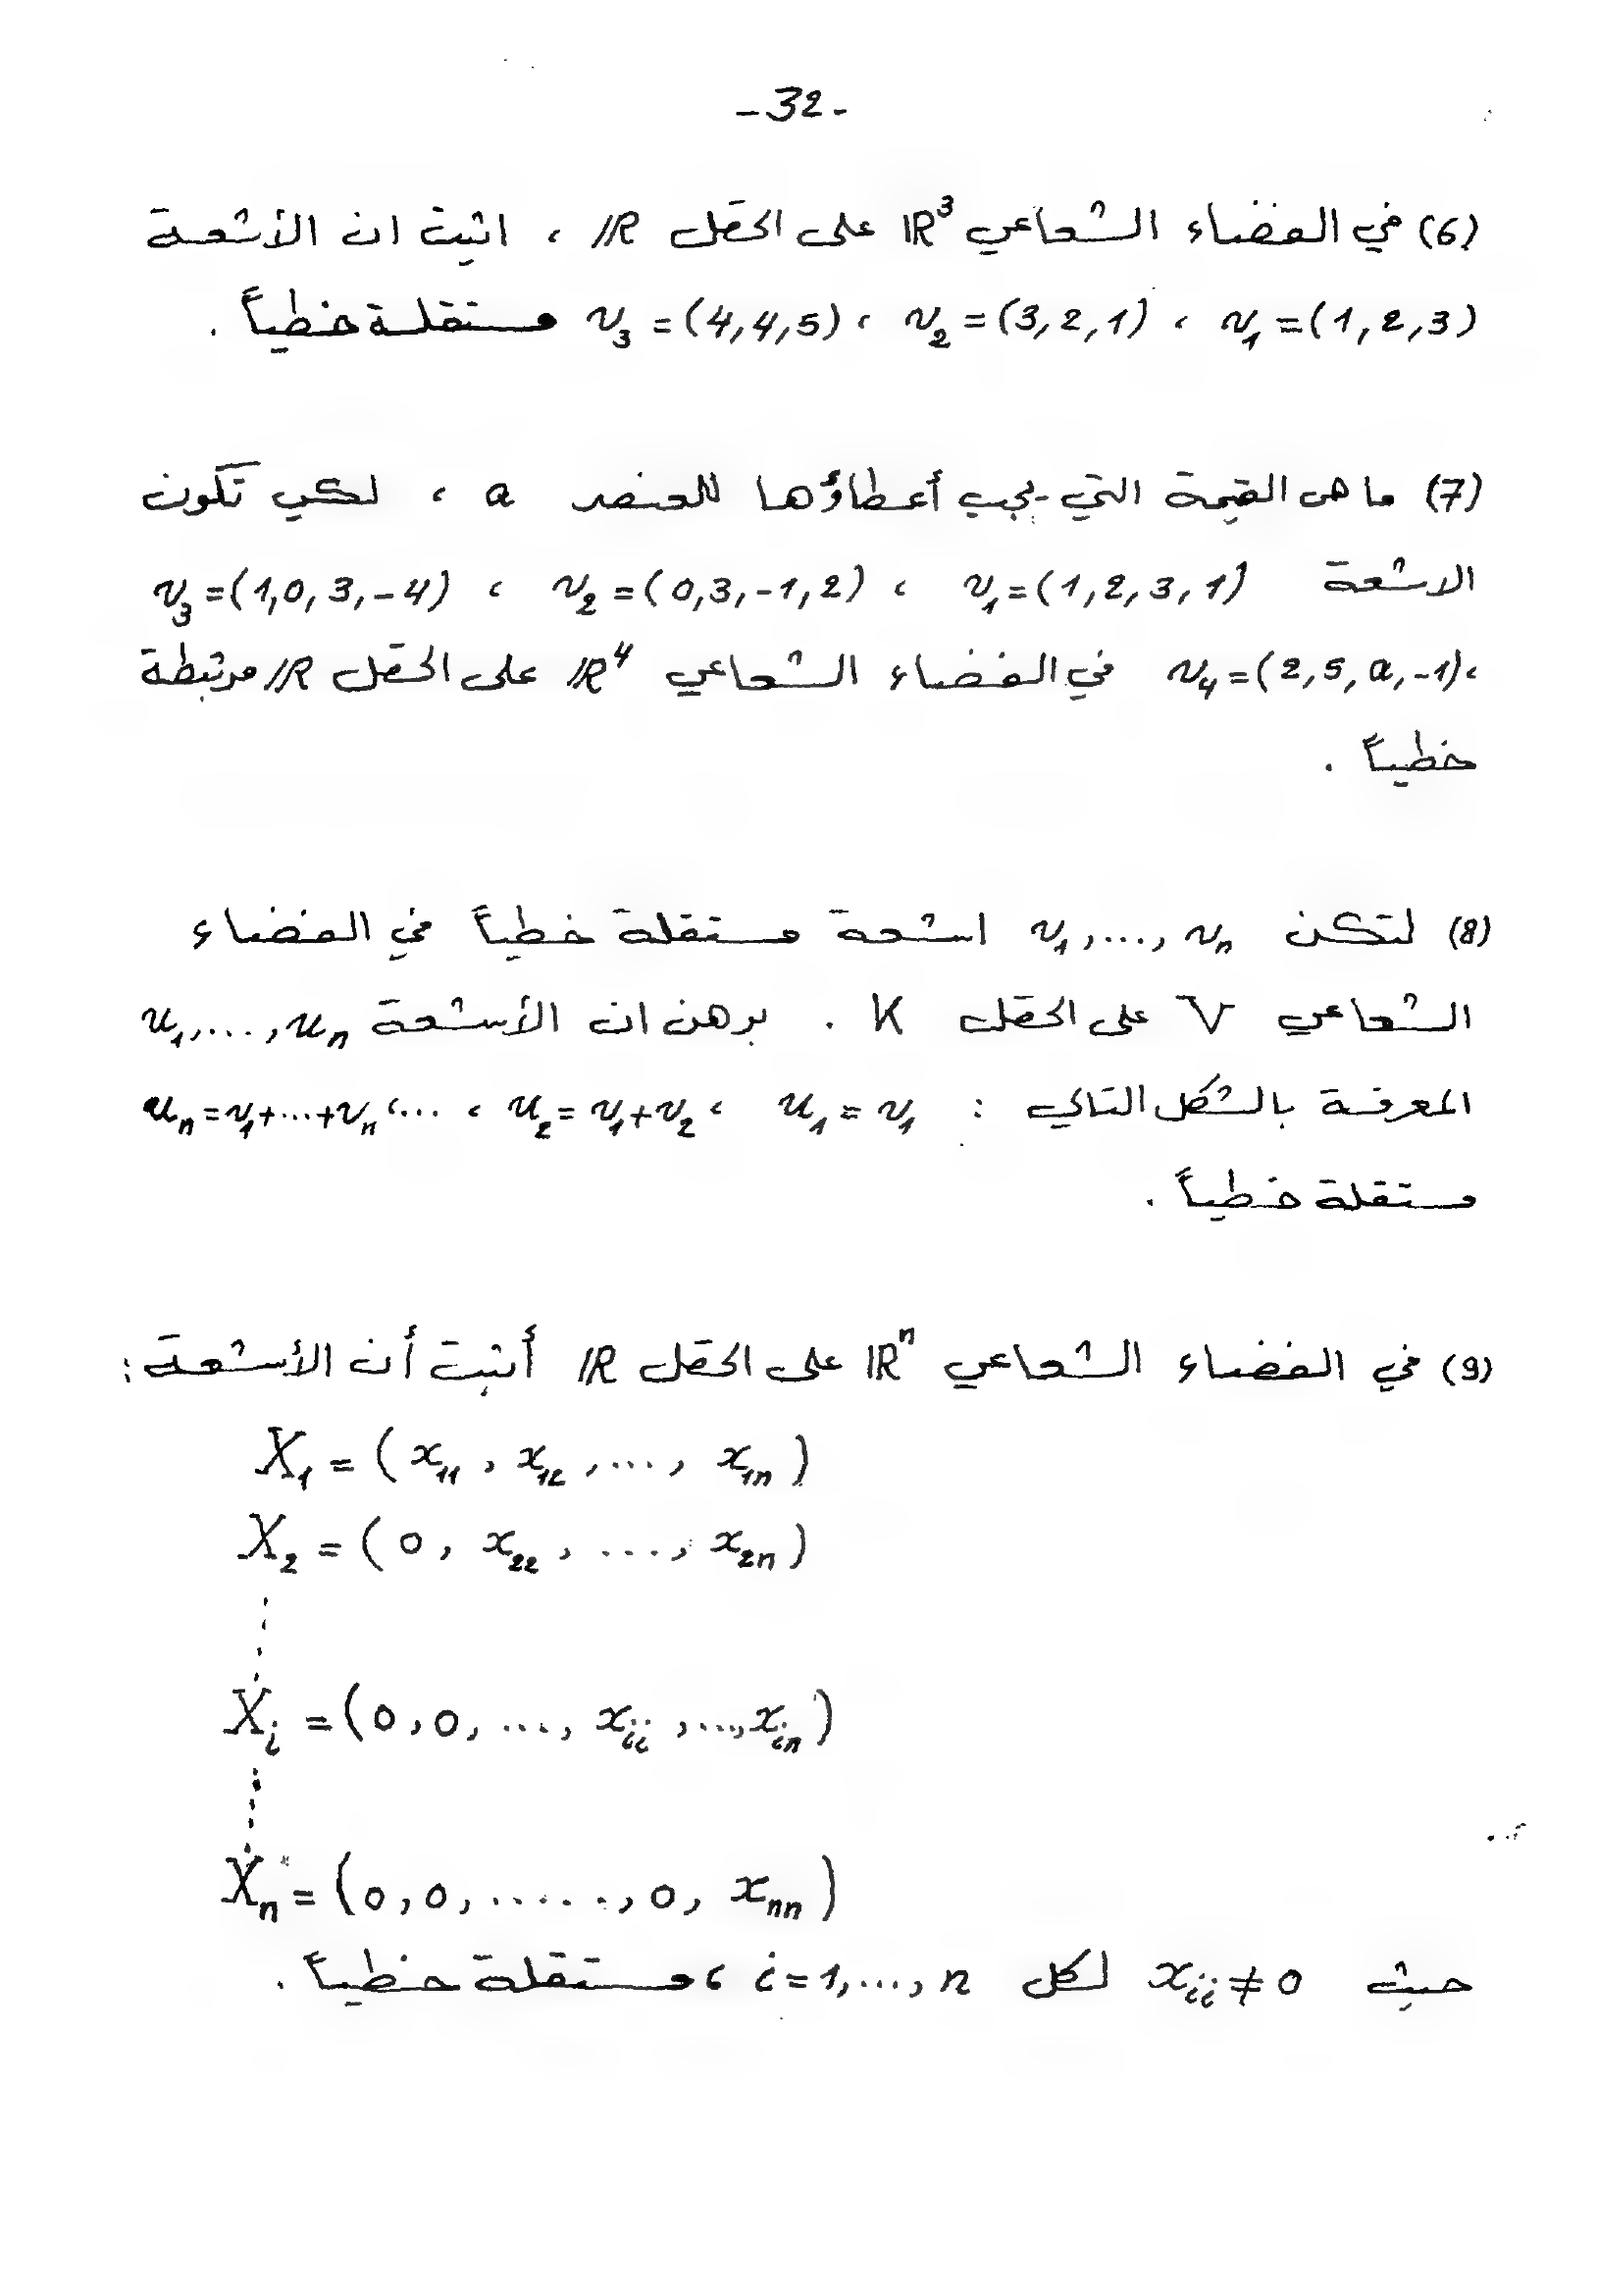 -32-
(6) في الفضاء الشعاعي ℝ³ على الحقل ℝ ، اثبت ان الأشعة
v₁=(1,2,3) ، v₂=(3,2,1) ، v₃=(4,4,5) مستقلة خطياً .
(7) ما هى القيمة التي يجب أعطاؤها للعنصر a ، لكي تكون
الاشعة v₁=(1,2,3,1) ، v₂=(0,3,-1,2) ، v₃=(1,0,3,-4)
، v₄=(2,5,a,-1) في الفضاء الشعاعي ℝ⁴ على الحقل ℝ مرتبطة
خطياً .
(8) لتكن v₁,...,vₙ اشعة مستقلة خطياً في الفضاء
الشعاعي V على الحقل K . برهن ان الأشعة u₁,...,uₙ
المعرفة بالشكل التالي : u₁=v₁ ، u₂=v₁+v₂ ، ...، uₙ=v₁+...+vₙ
مستقلة خطياً .
(9) في الفضاء الشعاعي ℝⁿ على الحقل ℝ أثبت أن الأشعة :
X₁ = (x₁₁, x₁₂, ..., x₁ₙ)
X₂ = (0, x₂₂, ..., x₂ₙ)
Xᵢ = (0,0, ..., xᵢᵢ, ..., xᵢₙ)
Xₙ = (0,0, ......, 0, xₙₙ)
حيث xᵢᵢ≠0 لكل i=1,...,n ، مستقلة خطياً .